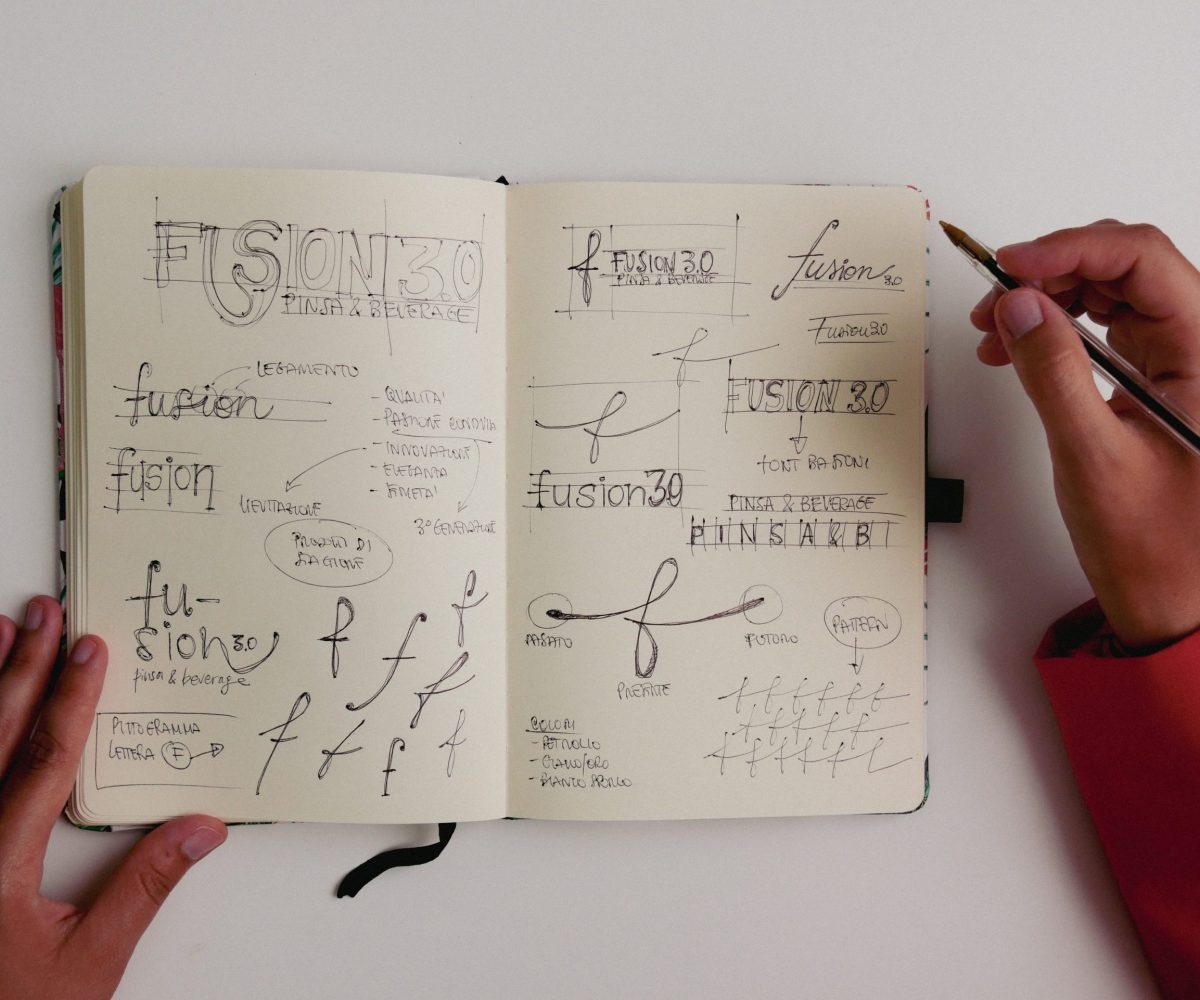 FUSION 3.0
PINSA & BEVERAGE
fusion
LEGAMENTO
- QUALITA'
- PASSIONE
- INNOVAZIONE
- ELEGANZA
fusion
LIEVITAZIONE
3° GENERAZIONE
PRODOTTI DI
STAGIONE
fu-
sion 3.0
pinsa & beverage
PITTOGRAMMA
LETTERA F
f
f
f
f
f
f
f
f
f FUSION 3.0
PINSA & BEVERAGE
fusion 3.0
Fusion 3.0
f
FUSION 3.0
f
FONT BASTONI
fusion 3.0
PINSA & BEVERAGE
PINSA & B
f
PASSATO
FUTURO
PRESENTE
PATTERN
f f f f f f
f f f f f f
f f f f f f
COLORI
- PETROLIO
- GIALLO/ORO
- BIANCO SPORCO